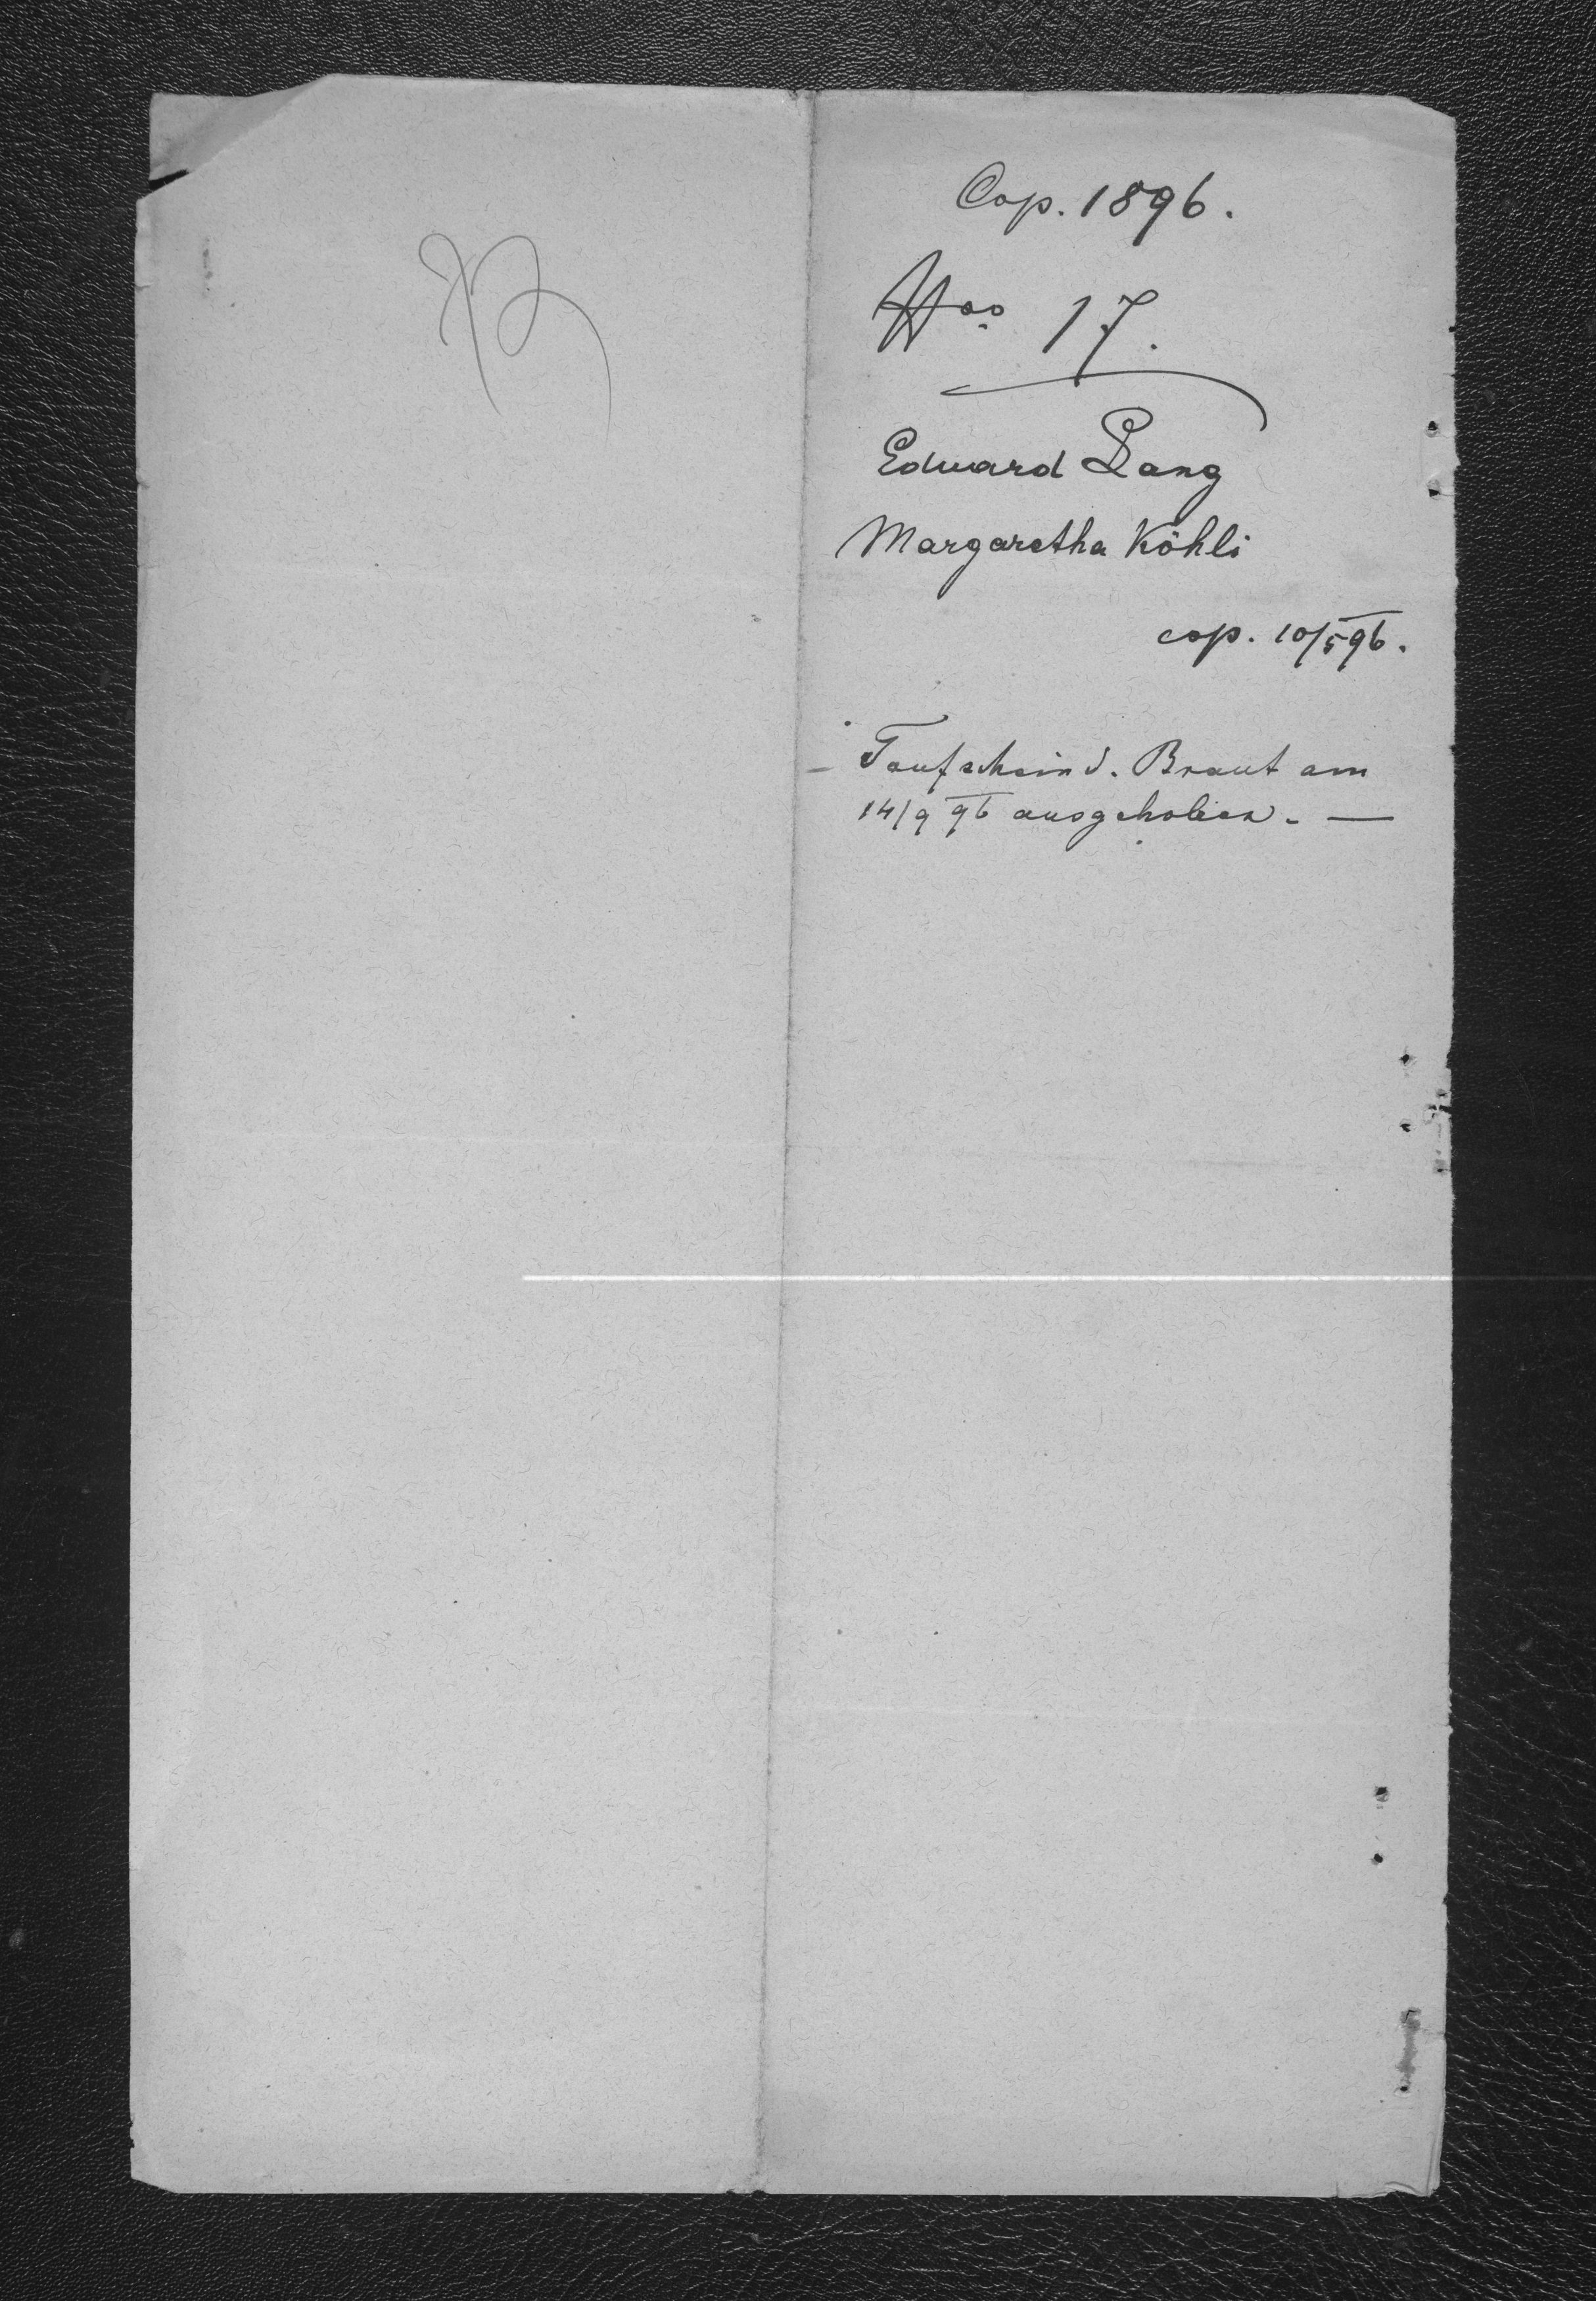 Cop. 1896.
Nro 17.
Eduard Lang
Margaretha Köhli
cop. 10/5 96.
Taufschein d. Braut am
14/9 96 ausgehoben. —